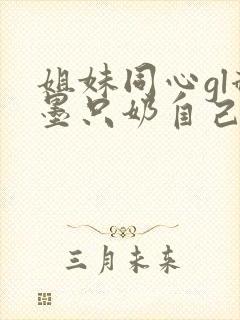 姐妹同心gl
墨只奶自己
三月未来